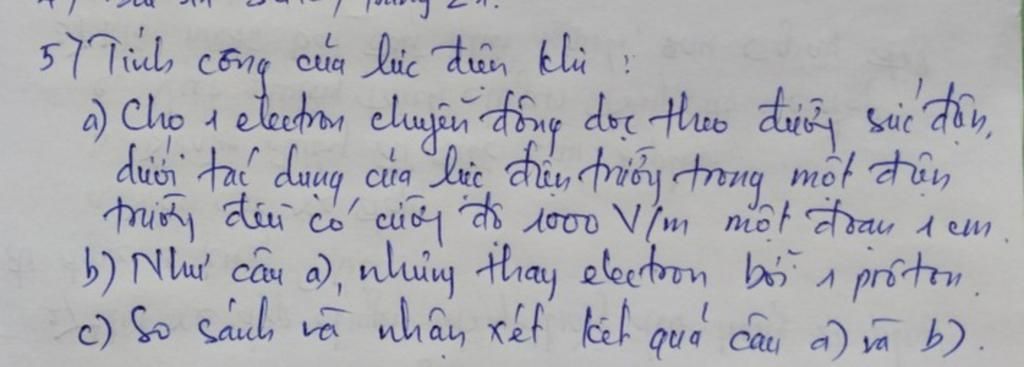 5) Tính công của lực điện khi :
a) Cho 1 electron chuyển động dọc theo đường sức điện,
dưới tác dụng của lực điện trường trong một điện
trường đều có cường độ 1000 V/m một đoạn 1 cm.
b) Như câu a), nhưng thay electron bởi 1 prôton.
c) So sánh và nhận xét kết quả câu a) và b).